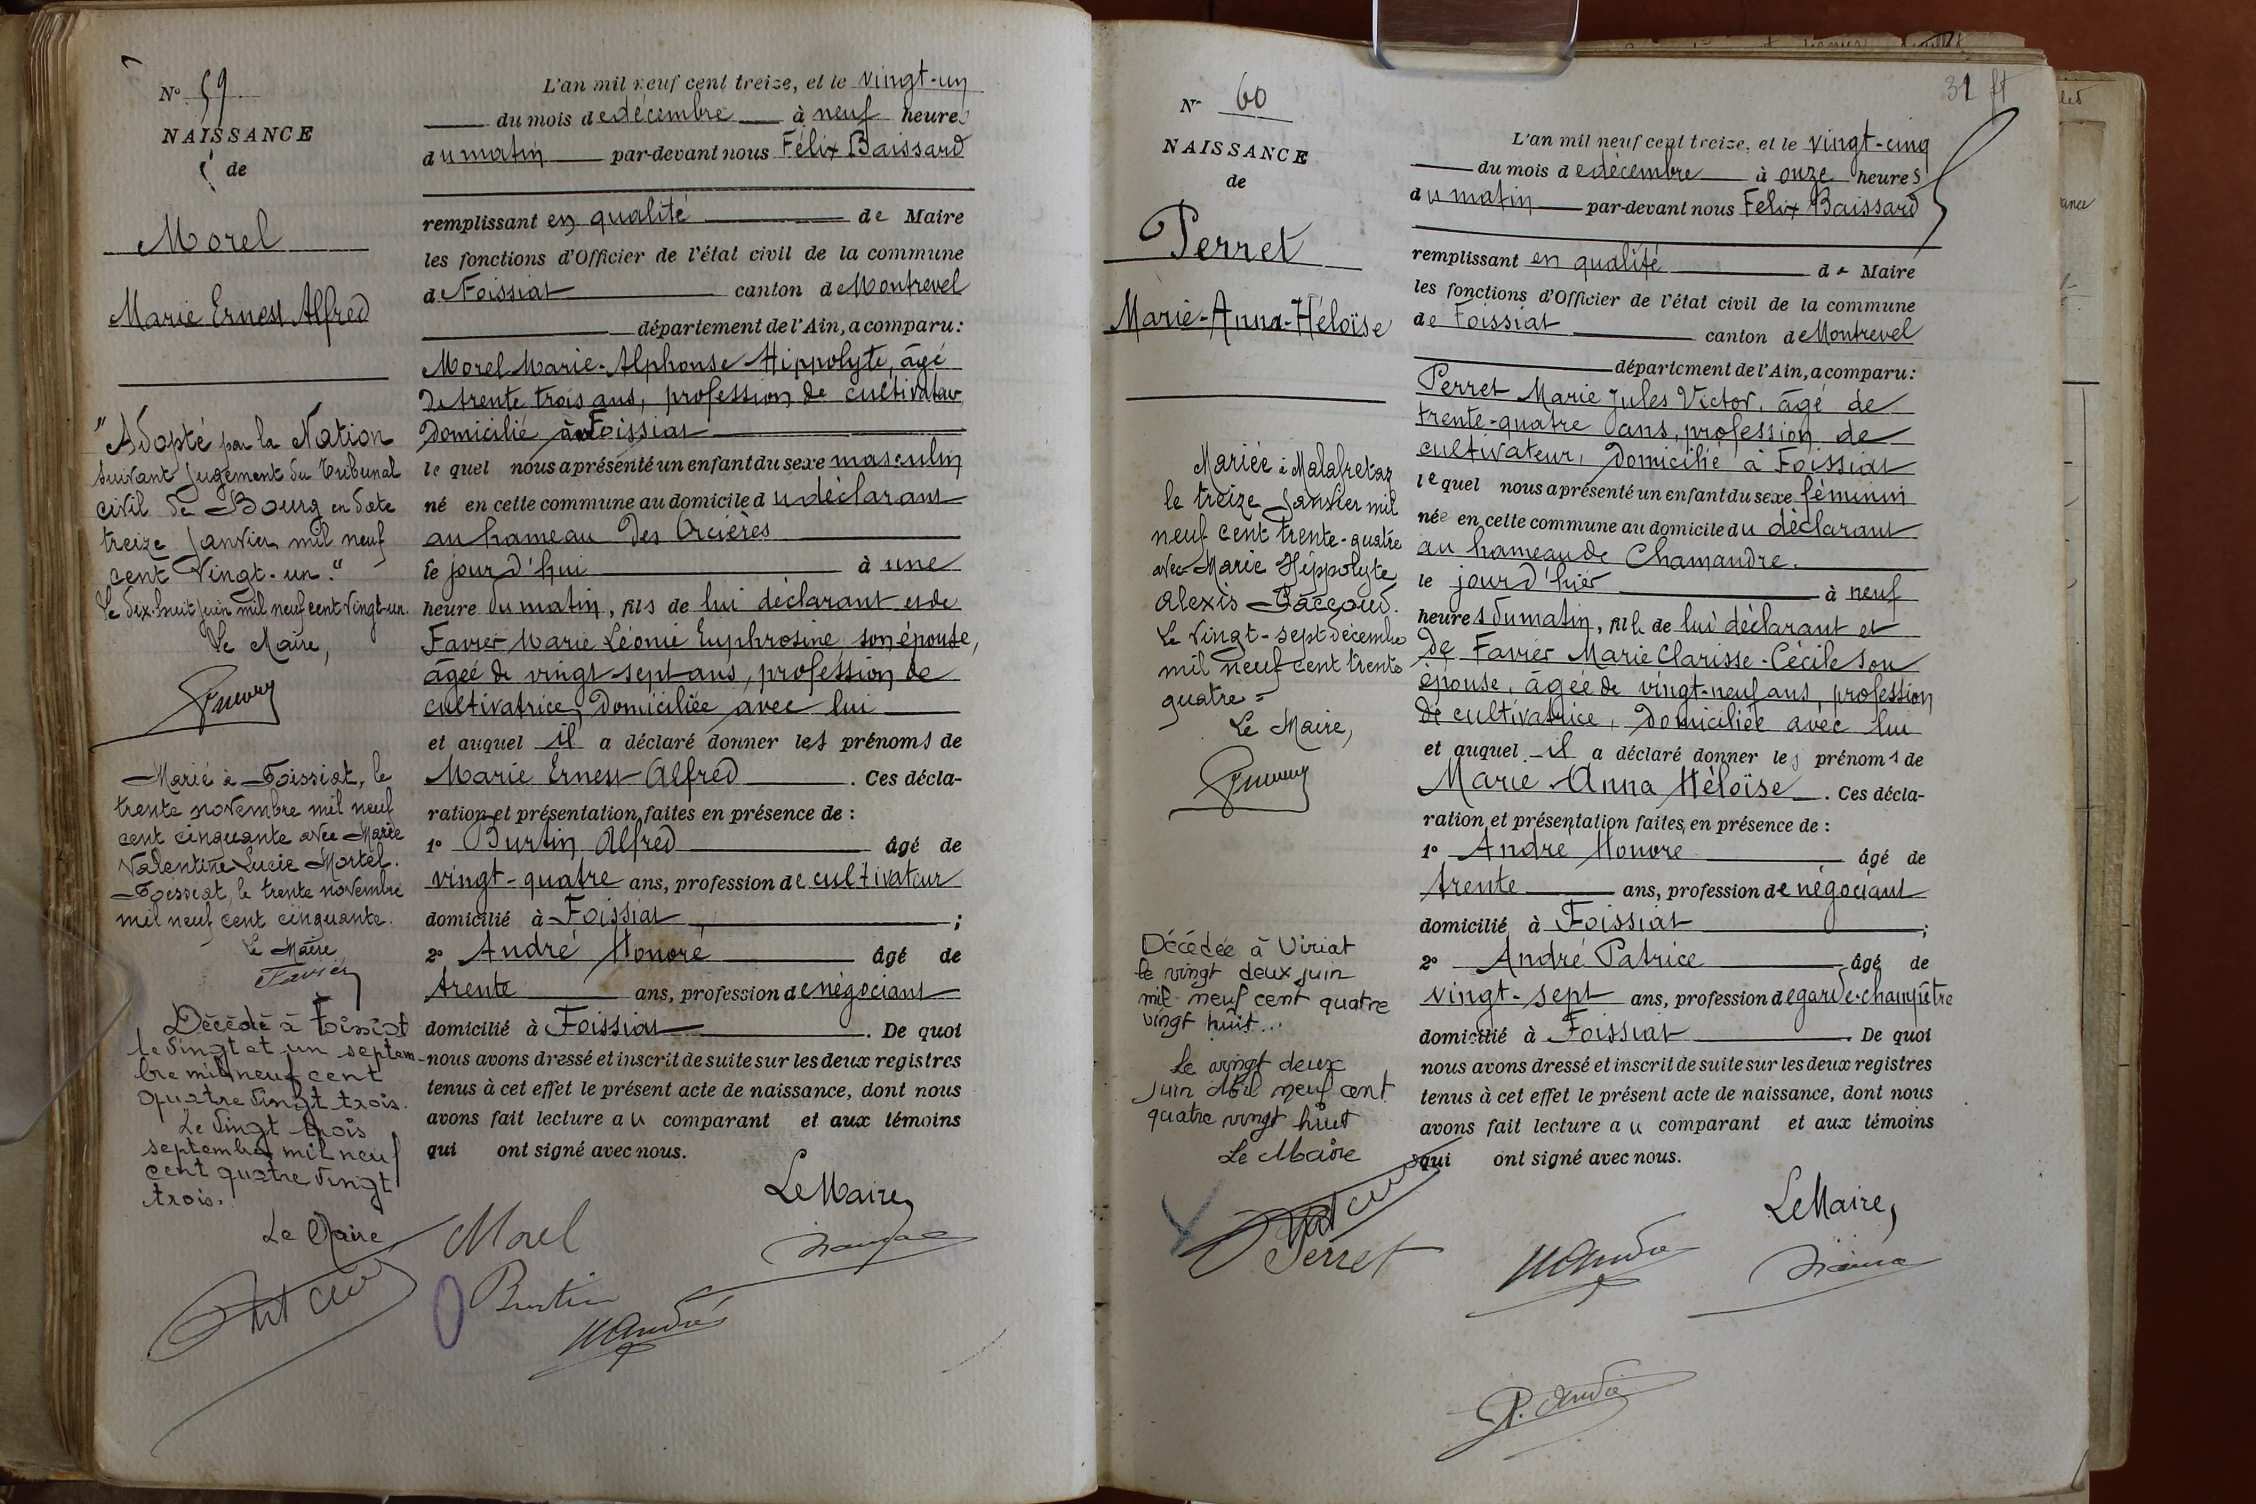 N° 59
NAISSANCE
de
Morel
Marie Ernest Alfred
"Adopté par la Nation
suivant jugement du Tribunal
civil de Bourg en date
treize janvier mil neuf
cent vingt-un."
Le dix-huit juin mil neuf cent vingt-un.
Le Maire,
Marié à Foissiat, le
trente novembre mil neuf
cent cinquante avec Marie
Valentine Lucie Mortel.
Foissiat, le trente novembre
mil neuf cent cinquante.
Le Maire
Favier
Décédé à Foissiat
le vingt et un septem-
bre mil neuf cent
quatre vingt trois.
Le vingt trois
septembre mil neuf
cent quatre vingt
trois.
Le Maire
L'an mil neuf cent treize, et le vingt-un
du mois de décembre à neuf heures
du matin par-devant nous Félix Baissard
remplissant en qualité de Maire
les fonctions d'Officier de l'état civil de la commune
de Foissiat canton de Montrevel
département de l'Ain, a comparu :
Morel Marie-Alphonse-Hippolyte, âgé
de trente trois ans, profession de cultivateur
domicilié à Foissiat
le quel nous a présenté un enfant du sexe masculin
né en cette commune au domicile du déclarant
au hameau des Orcières
le jour d'hui à une
heure du matin, fils de lui déclarant et de
Favier Marie Léonie Euphrosine son épouse,
âgée de vingt-sept ans, profession de
cultivatrice, domiciliée avec lui
et auquel il a déclaré donner les prénoms de
Marie Ernest Alfred . Ces décla-
ration et présentation faites en présence de :
1° Burtin Alfred âgé de
vingt-quatre ans, profession de cultivateur
domicilié à Foissiat ;
2° André Honoré âgé de
trente ans, profession de négociant
domicilié à Foissiat . De quoi
nous avons dressé et inscrit de suite sur les deux registres
tenus à cet effet le présent acte de naissance, dont nous
avons fait lecture au comparant et aux témoins
qui ont signé avec nous.
Le Maire,
Morel
Burtin
H André
31
N° 60
NAISSANCE
de
Perret
Marie-Anna-Héloïse
Mariée à Malafretaz
le treize janvier mil
neuf cent trente-quatre
avec Marie Hippolyte
Alexis Paccoud.
Le vingt-sept décembre
mil neuf cent trente
quatre =
Le Maire,
Décédée à Viriat
le vingt deux juin
mil neuf cent quatre
vingt huit...
Le vingt deux
juin Mil neuf cent
quatre vingt huit
Le Maire
L'an mil neuf cent treize, et le vingt-cinq
du mois de décembre à onze heures
du matin par-devant nous Félix Baissard
remplissant en qualité de Maire
les fonctions d'Officier de l'état civil de la commune
de Foissiat canton de Montrevel
département de l'Ain, a comparu :
Perret Marie Jules Victor, âgé de
trente-quatre ans, profession de
cultivateur, domicilié à Foissiat
le quel nous a présenté un enfant du sexe féminin
née en cette commune au domicile du déclarant
au hameau de Chamandre.
le jour d'hier à neuf
heures du matin, fille de lui déclarant et
de Favier Marie Clarisse-Cécile son
épouse, âgée de vingt-neuf ans, profession
de cultivatrice, domiciliée avec lui
et auquel il a déclaré donner les prénoms de
Marie-Anna Héloïse . Ces décla-
ration et présentation faites en présence de :
1° André Honoré âgé de
trente ans, profession de négociant
domicilié à Foissiat ;
2° André Patrice âgé de
vingt-sept ans, profession de garde-champêtre
domicilié à Foissiat . De quoi
nous avons dressé et inscrit de suite sur les deux registres
tenus à cet effet le présent acte de naissance, dont nous
avons fait lecture au comparant et aux témoins
qui ont signé avec nous.
Le Maire,
Perret
H André
P. André